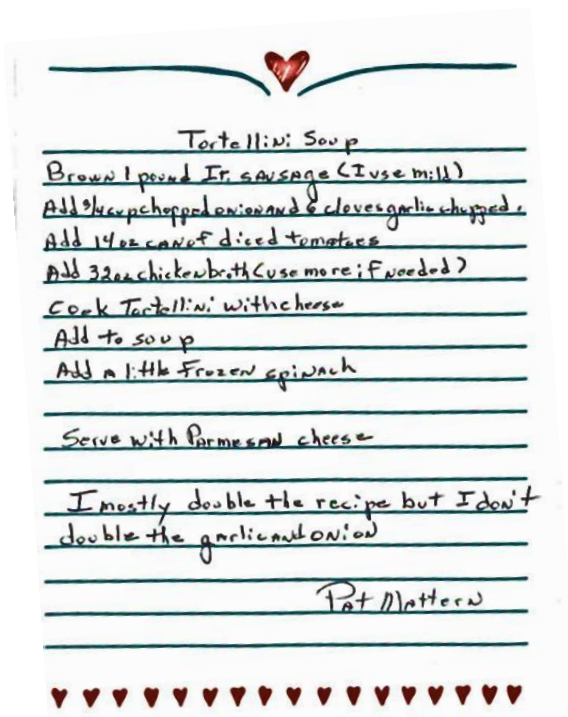 Tortellini Soup
Brown 1 pound It. sausage (I use mild)
Add 3/4 cup chopped onion and 6 cloves garlic chopped.
Add 14 oz can of diced tomatoes
Add 32 oz chicken broth (use more if needed)
Cook Tortellini with cheese
Add to soup
Add a little frozen spinach
Serve with Parmesan cheese
I mostly double the recipe but I don't
double the garlic and onion
Pat Mattern